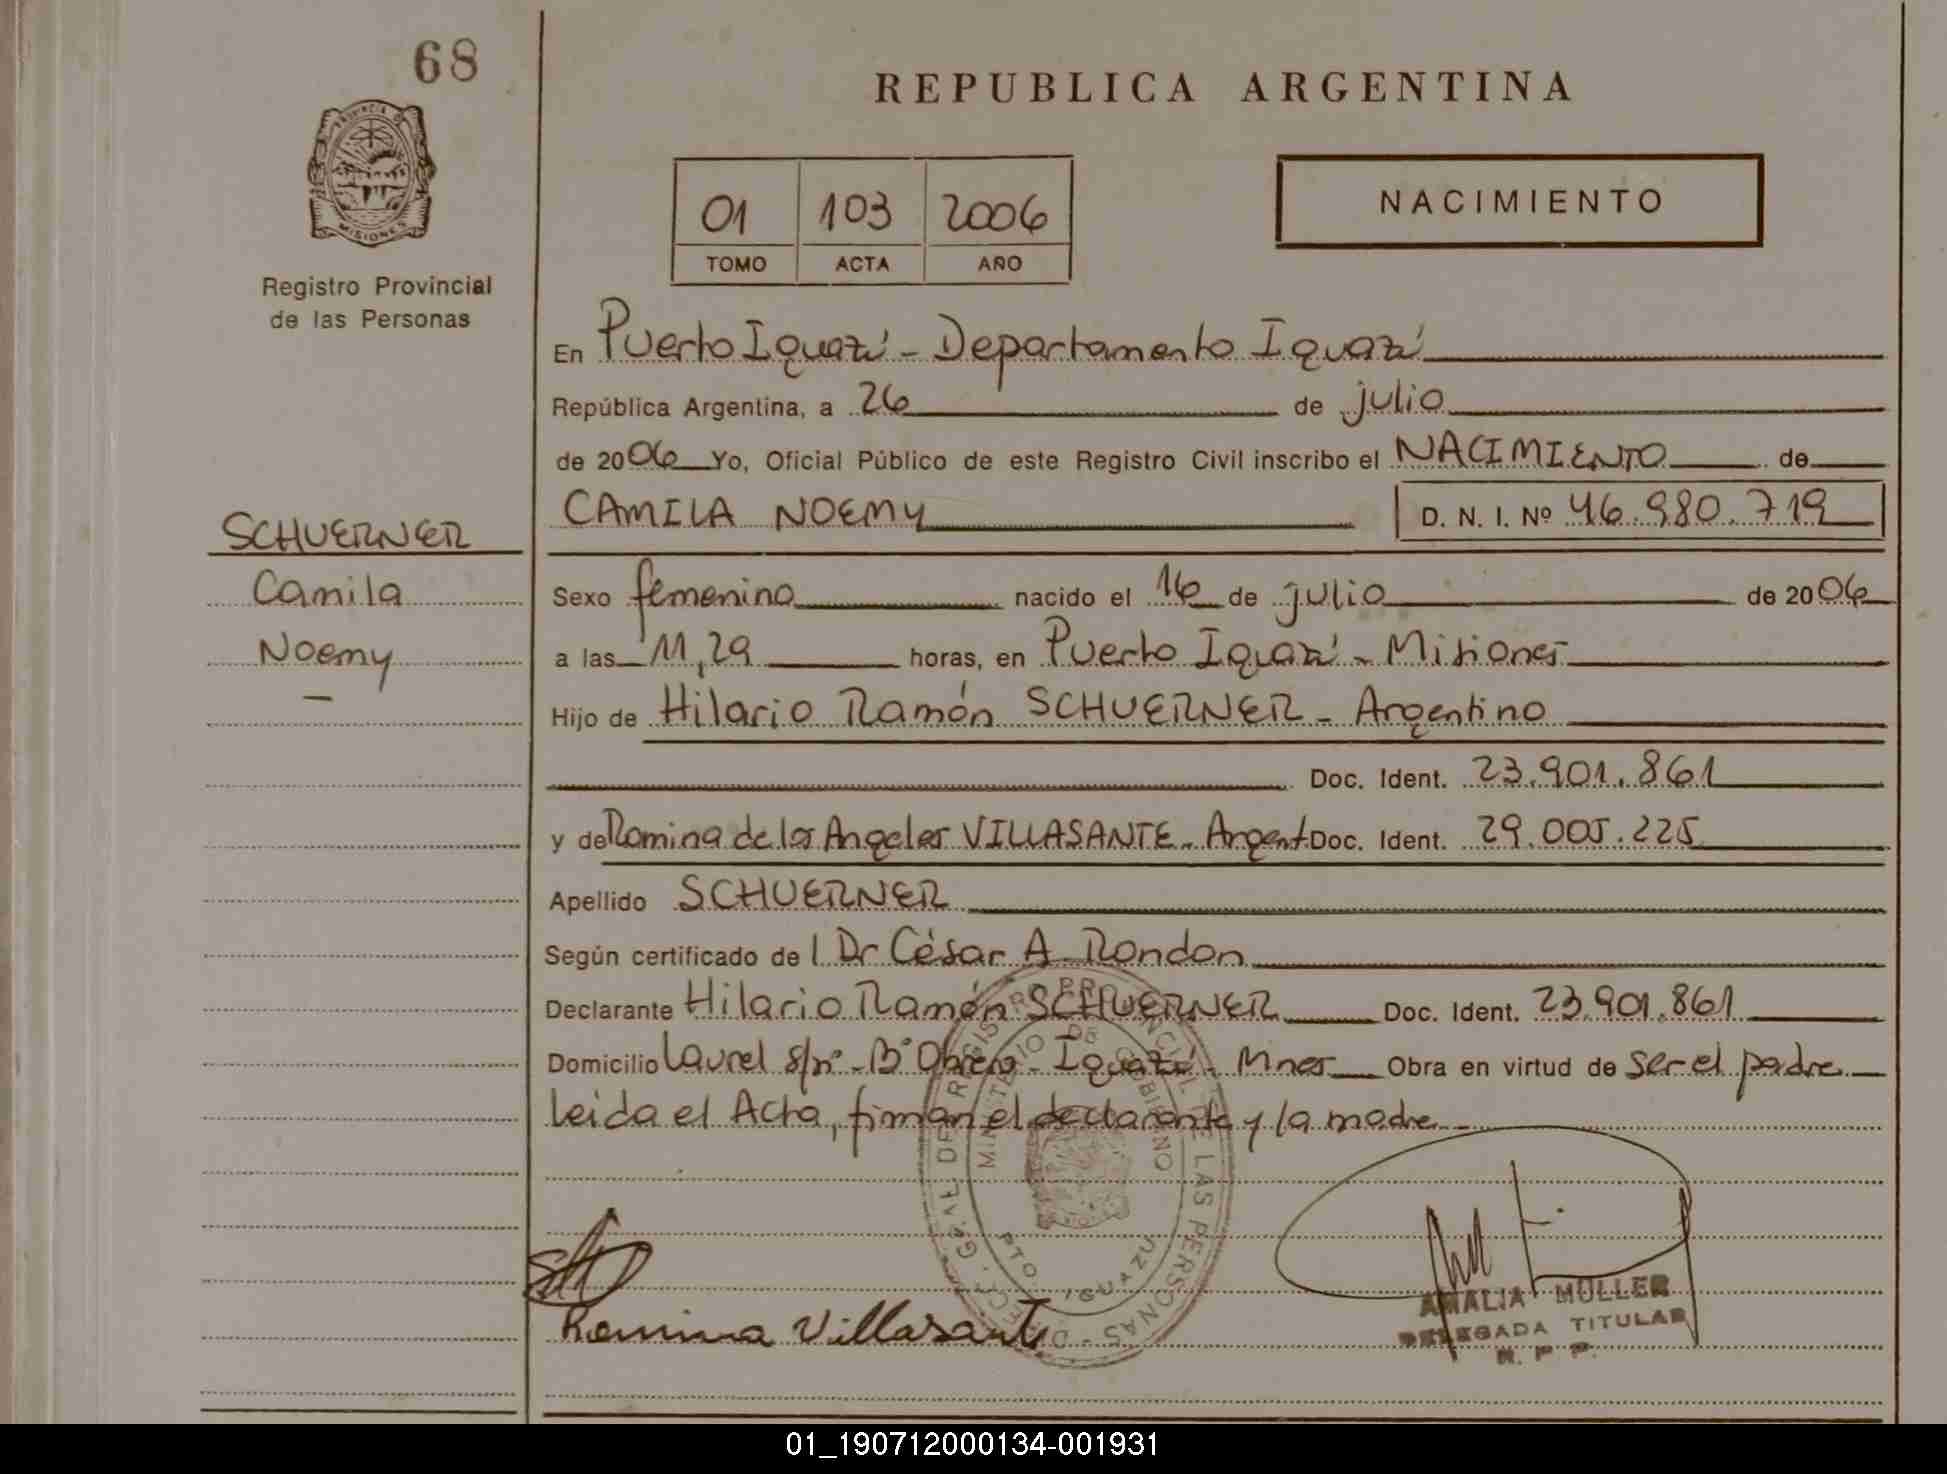 68
REPUBLICA ARGENTINA
PROVINCIA DE
MISIONES
Registro Provincial
de las Personas
01 103 2006
TOMO ACTA AÑO
NACIMIENTO
En Puerto Iguazú - Departamento Iguazú
República Argentina, a 26 de julio
de 2006 Yo, Oficial Público de este Registro Civil inscribo el NACIMIENTO de
CAMILA NOEMY D. N. I. Nº 46.980.719
SCHUERNER
Camila
Noemy
Sexo femenino nacido el 16 de julio de 2006
a las 11,29 horas, en Puerto Iguazú - Misiones
Hijo de Hilario Ramón SCHUERNER - Argentino
Doc. Ident. 23.901.861
y de Romina de los Angeles VILLASANTE - Argent. Doc. Ident. 29.005.225
Apellido SCHUERNER
Según certificado de l Dr César A. Rondon
Declarante Hilario Ramón SCHUERNER Doc. Ident. 23.901.861
Domicilio Laurel s/nº - Bº Obrero - Iguazú - Mnes Obra en virtud de ser el padre
Leida el Acta, firman el declarante y la madre -
DIRECC. GRAL DEL REGISTRO PROVINCIAL DE LAS PERSONAS
MINISTERIO DE GOBIERNO
PTO. IGUAZU
Romina Villasante
AMALIA MULLER
DELEGADA TITULAR
R. P. P.
01_190712000134-001931